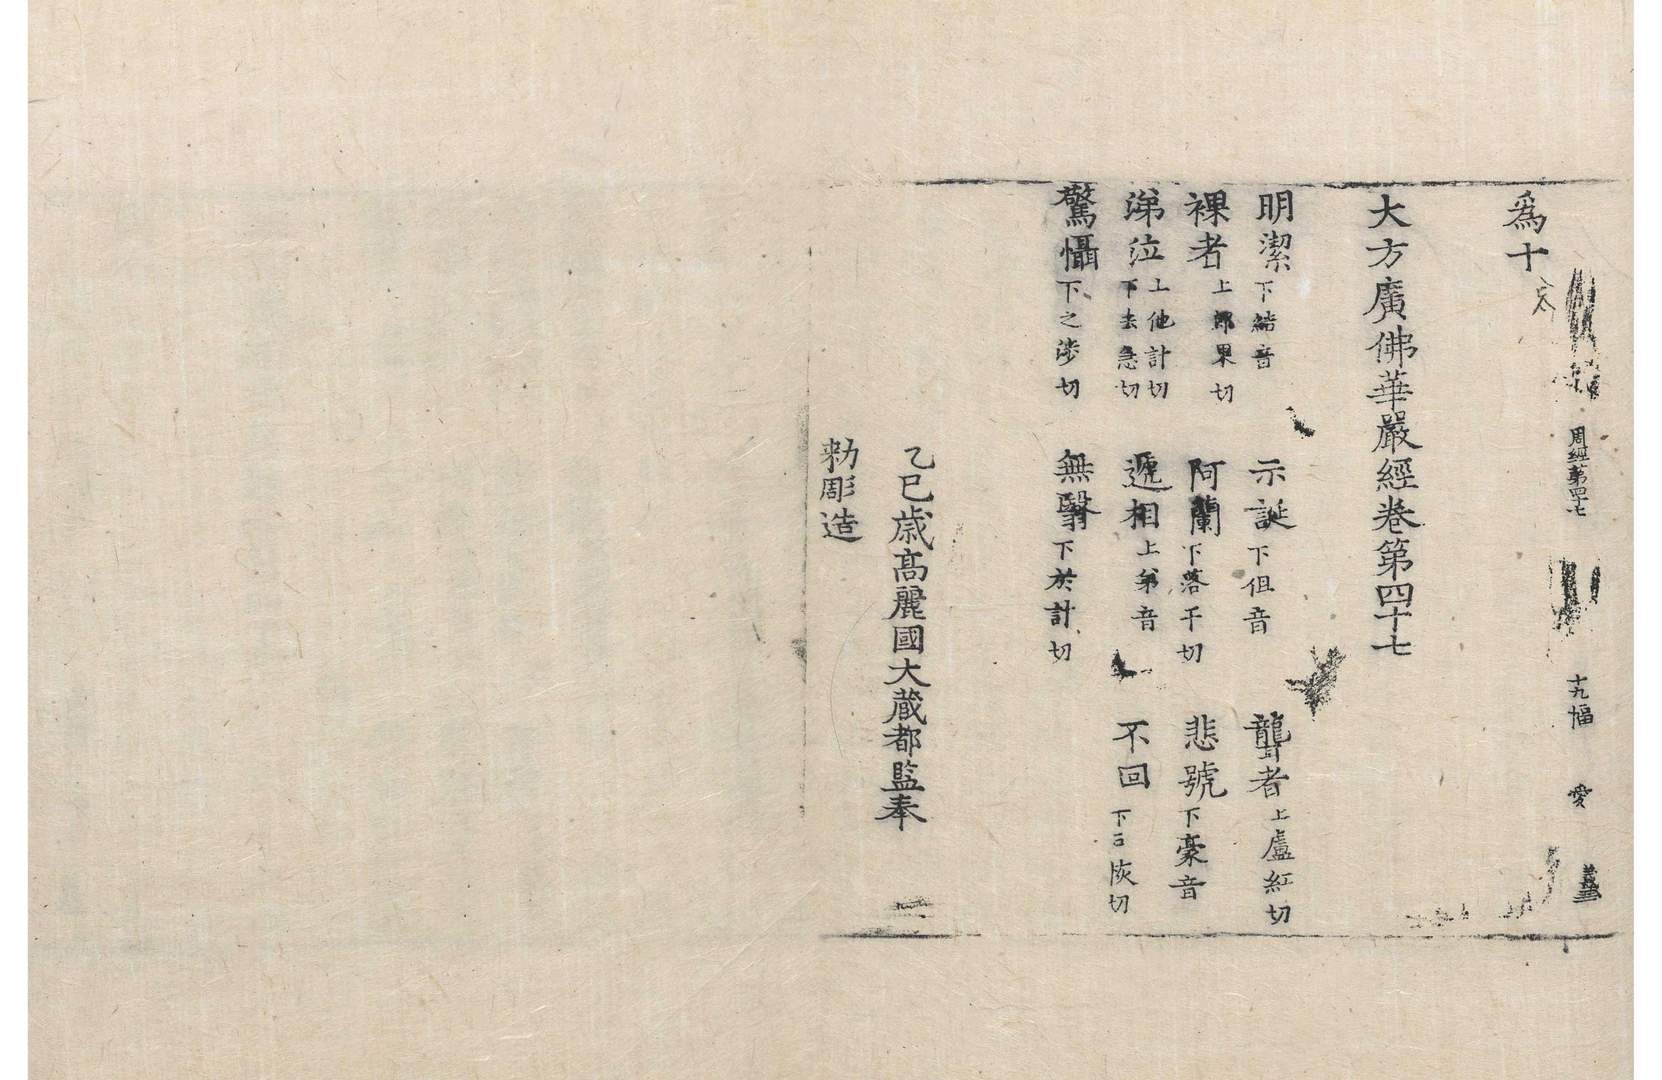 周經第四十七 十九幅 愛
爲十
大方廣佛華嚴經卷第四十七
明潔下結音 示誕下但音 聾者上盧紅切
裸者上郎果切 阿蘭下落干切 悲號下豪音
涕泣上他計切下去急切 遞相上弟音 不回下戶恢切
驚懾下之涉切 無翳下於計切
乙巳歲高麗國大藏都監奉
勅彫造